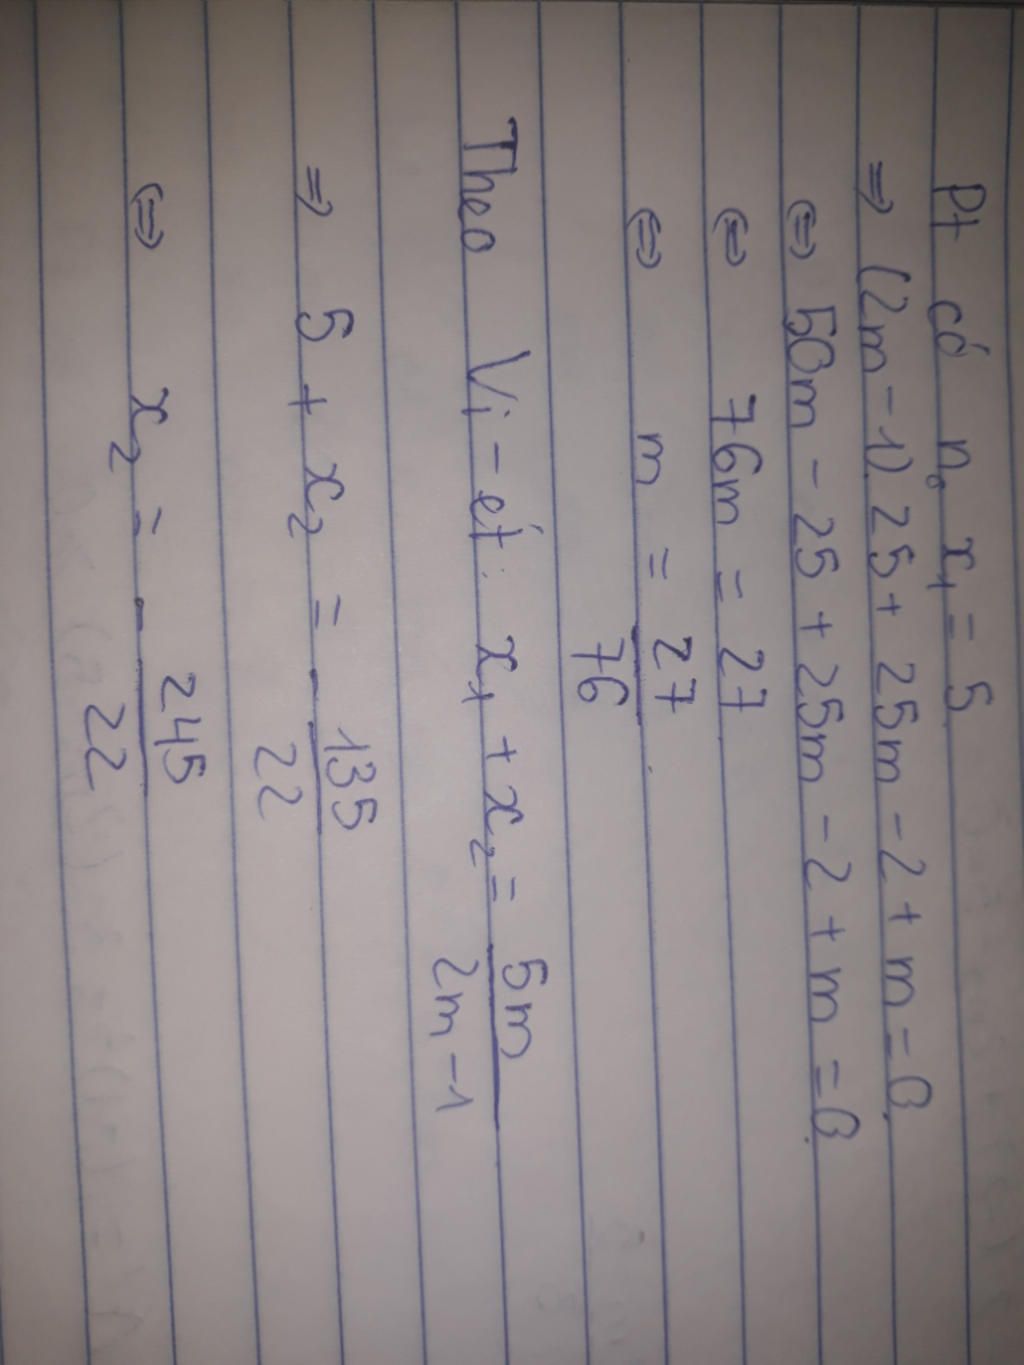 Pt có n₀ x₁ = 5
⇒ (2m - 1).25 + 25m - 2 + m = 0
⇔ 50m - 25 + 25m - 2 + m = 0
⇔ 76m = 27
⇔ m = 27/76
Theo Vi-ét: x₁ + x₂ = 5m/(2m - 1)
⇒ 5 + x₂ = - 135/22
⇔ x₂ = - 245/22